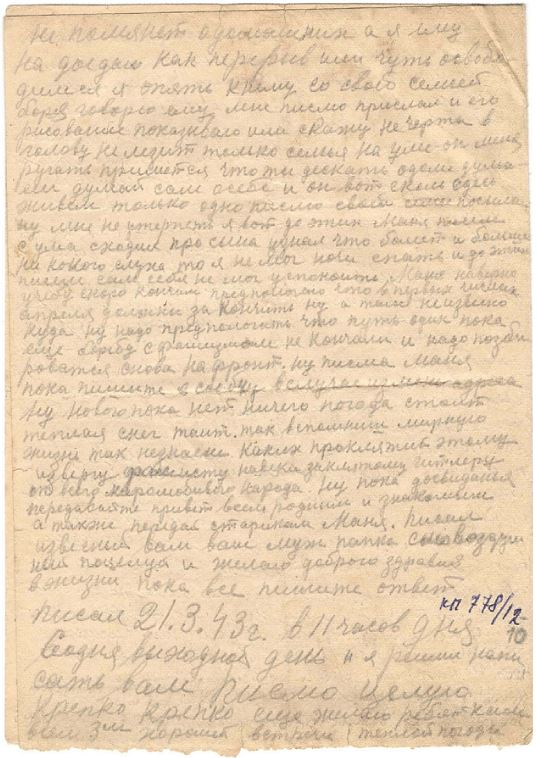 не помянет а я ему
на доедаю как перерыв или чуть освобо
димся я опять к нему со своей семьей
боря говорю ему мне писмо прислал и его
рисование показываю или скажу не черта в
голову не лезит только семья на уме он меня
ругать примется что ты дескать одели дума
еш думай сам о себе и он вот сколь здесь
живем только одно писмо своей
ну мне не утерпеть я вот до этих Маня писем
с ума сходил про сына узнал что болит и больше
ни какого слуха то я не мог ночи спать и до этих
писем сам себя не мог успокоить Маня наверно
учебу скоро кончим предпологаю что в первых числах
апреля должны закончить ну а там неизвесно
куда ну надо предпологать что путь один пока
еще борьбу с фашизмом не кончили и надо
роватся снова на фронт. ну писма Маня
пока пишите
ну нового пока нет ничего погода стоит
теплая снег таит. так вспомниш мирную
жизнь так незнаеш каких проклятий этому
извергу фашисту навека заклятому гитлеру
от всего народа. ну пока досвиданья
передавайте привет всем родным и знакомым
а также передай старикам Маня. писал
известный вам ваш муж папка
поцелуй и желаю доброго здравия
в жизни пока все пишите ответ
писал 21.3.43 г. в 11 часов дня
кп 778/12-
10
Сегодня выходной день и я решил напи
сать вам писмо целую
крепко крепко еще желаю
всем 3м хорошей встречи теплой погоды